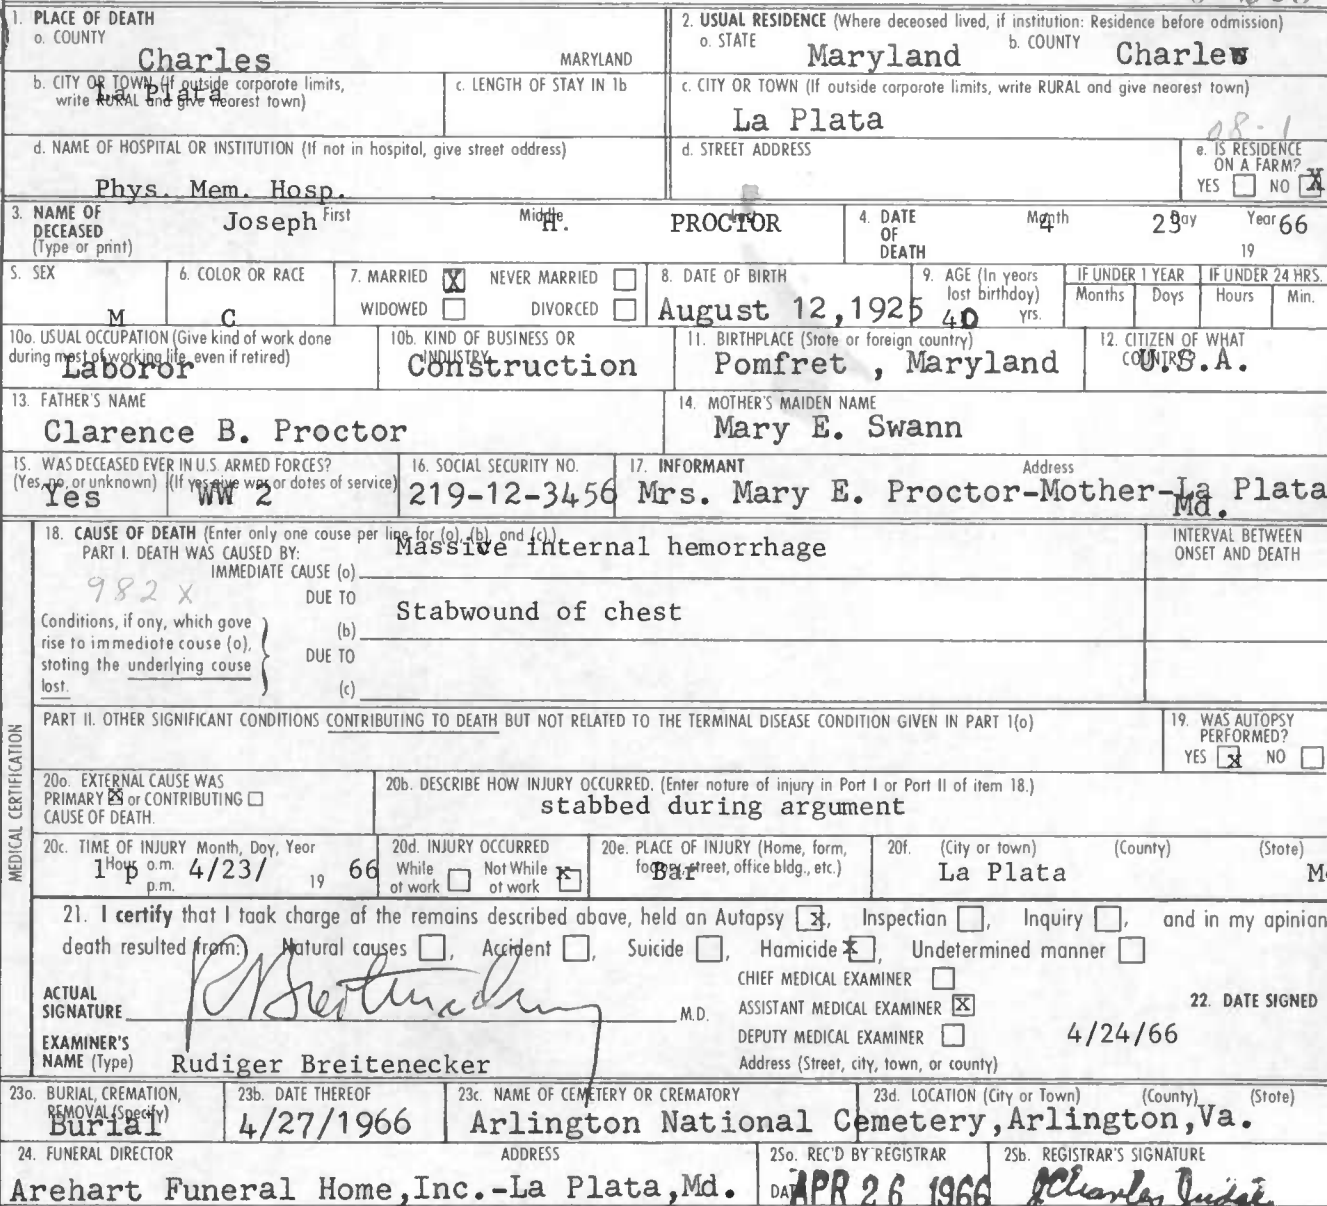 1. PLACE OF DEATH
a. COUNTY
Charles
MARYLAND
2. USUAL RESIDENCE (Where deceased lived, if institution: Residence before admission)
a. STATE
Maryland
b. COUNTY
Charles
b. CITY OR TOWN (If outside corporate limits, write RURAL and give nearest town)
La Plata
c. LENGTH OF STAY IN 1b
c. CITY OR TOWN (If outside corporate limits, write RURAL and give nearest town)
La Plata
08-1
d. NAME OF HOSPITAL OR INSTITUTION (If not in hospital, give street address)
Phys. Mem. Hosp.
d. STREET ADDRESS
e. IS RESIDENCE ON A FARM?
YES NO X
3. NAME OF DECEASED (Type or print)
First Middle Last
Joseph H. PROCTOR
4. DATE OF DEATH
Month Day Year
4 23 66
19
5. SEX
M
6. COLOR OR RACE
C
7. MARRIED X NEVER MARRIED
WIDOWED DIVORCED
8. DATE OF BIRTH
August 12,1925
9. AGE (In years last birthday)
40 yrs.
IF UNDER 1 YEAR
Months Days
IF UNDER 24 HRS.
Hours Min.
10a. USUAL OCCUPATION (Give kind of work done during most of working life, even if retired)
Laboror
10b. KIND OF BUSINESS OR INDUSTRY
Construction
11. BIRTHPLACE (State or foreign country)
Pomfret , Maryland
12. CITIZEN OF WHAT COUNTRY?
U.S.A.
13. FATHER'S NAME
Clarence B. Proctor
14. MOTHER'S MAIDEN NAME
Mary E. Swann
15. WAS DECEASED EVER IN U.S. ARMED FORCES?
(Yes, no, or unknown) (If yes give war or dates of service)
Yes WW 2
16. SOCIAL SECURITY NO.
219-12-3456
17. INFORMANT Address
Mrs. Mary E. Proctor-Mother-La Plata
Md.
MEDICAL CERTIFICATION
18. CAUSE OF DEATH (Enter only one cause per line for (a), (b), and (c).)
PART I. DEATH WAS CAUSED BY:
IMMEDIATE CAUSE (a)
Massive internal hemorrhage
INTERVAL BETWEEN ONSET AND DEATH
982 X
Conditions, if any, which gave rise to immediate cause (a), stating the underlying cause last.
DUE TO
(b)
Stabwound of chest
DUE TO
(c)
PART II. OTHER SIGNIFICANT CONDITIONS CONTRIBUTING TO DEATH BUT NOT RELATED TO THE TERMINAL DISEASE CONDITION GIVEN IN PART 1(a)
19. WAS AUTOPSY PERFORMED?
YES x NO
20a. EXTERNAL CAUSE WAS
PRIMARY X or CONTRIBUTING
CAUSE OF DEATH.
20b. DESCRIBE HOW INJURY OCCURRED. (Enter nature of injury in Part I or Part II of item 18.)
stabbed during argument
20c. TIME OF INJURY Month, Day, Year
Hour a.m.
p.m.
1 p 4/23/ 19 66
20d. INJURY OCCURRED
While at work Not While at work x
20e. PLACE OF INJURY (Home, farm, factory, street, office bldg., etc.)
Bar
20f. (City or town) (County) (State)
La Plata
21. I certify that I took charge of the remains described above, held an Autopsy x, Inspection , Inquiry , and in my opinion
death resulted from: Natural causes , Accident , Suicide , Homicide x, Undetermined manner
ACTUAL SIGNATURE
R Breitenecker
M.D.
CHIEF MEDICAL EXAMINER
ASSISTANT MEDICAL EXAMINER X
DEPUTY MEDICAL EXAMINER
Address (Street, city, town, or county)
22. DATE SIGNED
4/24/66
EXAMINER'S NAME (Type)
Rudiger Breitenecker
23a. BURIAL, CREMATION, REMOVAL (Specify)
Burial
23b. DATE THEREOF
4/27/1966
23c. NAME OF CEMETERY OR CREMATORY
23d. LOCATION (City or Town) (County) (State)
Arlington National Cemetery,Arlington,Va.
24. FUNERAL DIRECTOR ADDRESS
Arehart Funeral Home,Inc.-La Plata,Md.
25a. REC'D BY REGISTRAR
DATE
APR 26 1966
25b. REGISTRAR'S SIGNATURE
J Charles Judge